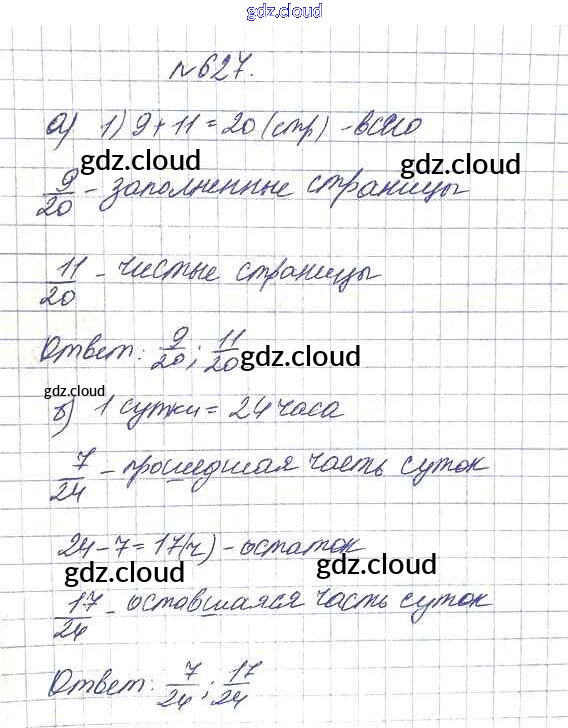 gdz.cloud
№627.
а) 1) 9+11=20 (стр) - всего
gdz.cloud gdz.cloud
9/20 - заполненные страницы
11/20 - чистые страницы
Ответ: 9/20; 11/20
gdz.cloud
gdz.cloud
б) 1 сутки = 24 часа
7/24 - прошедшая часть суток
24-7=17(ч) - остаток
gdz.cloud gdz.cloud
17/24 - оставшаяся часть суток
Ответ: 7/24; 17/24